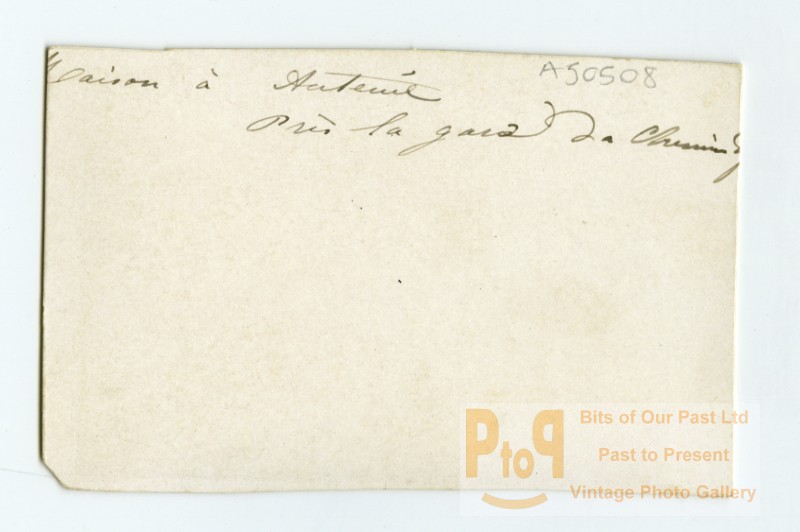 Maison à Auteuil
A50508
Près la gare du Chemin
PtoP
Bits of Our Past Ltd
Past to Present
Vintage Photo Gallery